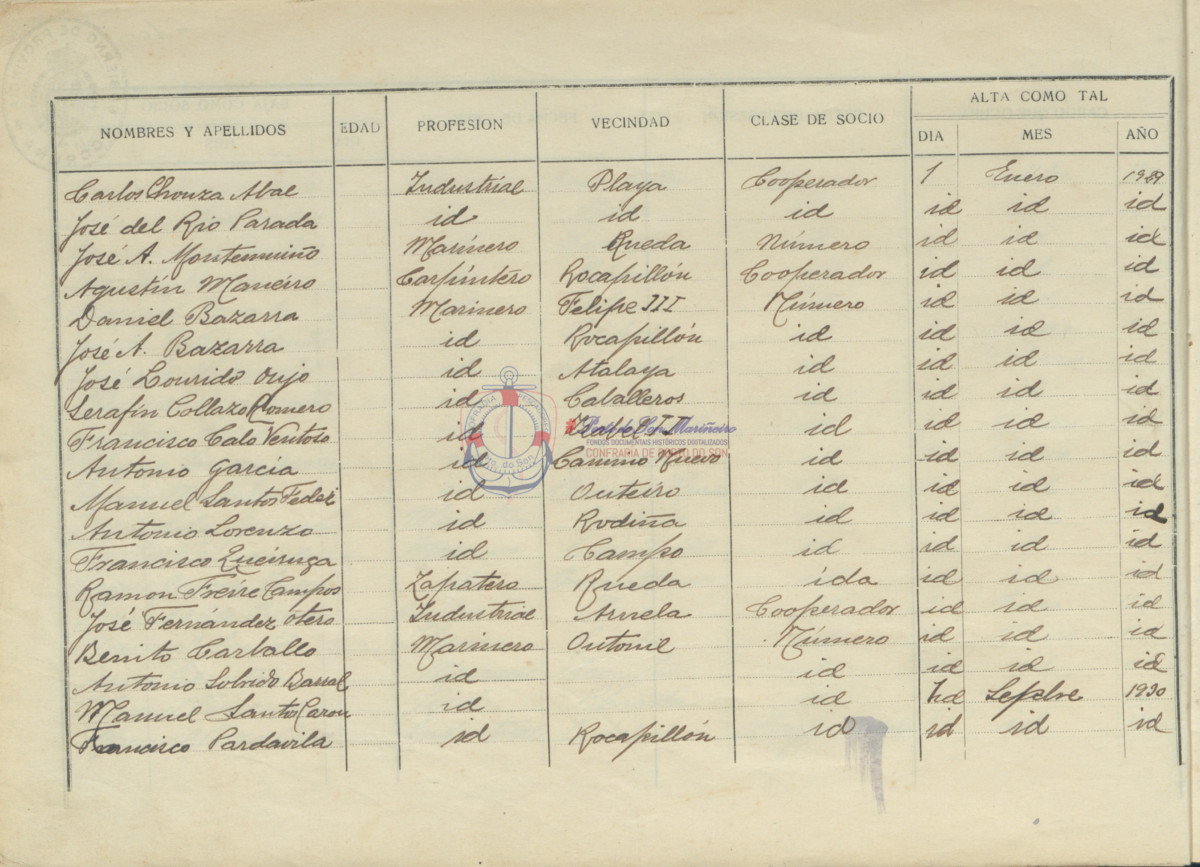 ALTA COMO TAL
NOMBRES Y APELLIDOS EDAD PROFESION VECINDAD CLASE DE SOCIO DIA MES AÑO
Carlos Chouza Abal Industrial Playa Cooperador 1 Enero
José del Rio Parada id id id id id id
José A. Montemuiño Marinero Rueda Número id id id
Agustín Maneiro Carpintero Rocapillón Cooperador id id id
Daniel Bazarra Marinero Felipe III Número id id id
José A. Bazarra id Rocapillón id id id id
José Lourido id Atalaya id id id id
Serafin Collazo Romero id Caballeros id id id id
Francisco Calo Ventoso id Isabel II id id id id
Porto do Son Mariñeiro
FONDOS DOCUMENTAIS HISTÓRICOS DIXITALIZADOS
CONFRARIA DE PORTO DO SON
Antonio García id Camino Nuevo id id id id
Manuel Santos id Outeiro id id id id
Antonio Lorenzo id Rodiña id id id id
Francisco Queiruga id Campo id id id id
Ramon Freire Campos Zapatero Rueda ida id id id
José Fernández Otero Industrial Arnela Cooperador id id id
Benito Carballo Marinero Número id id id
Antonio Barral id id id id id
Manuel Santos id id 1930
Francisco Pardavila id Rocapillón id id id id